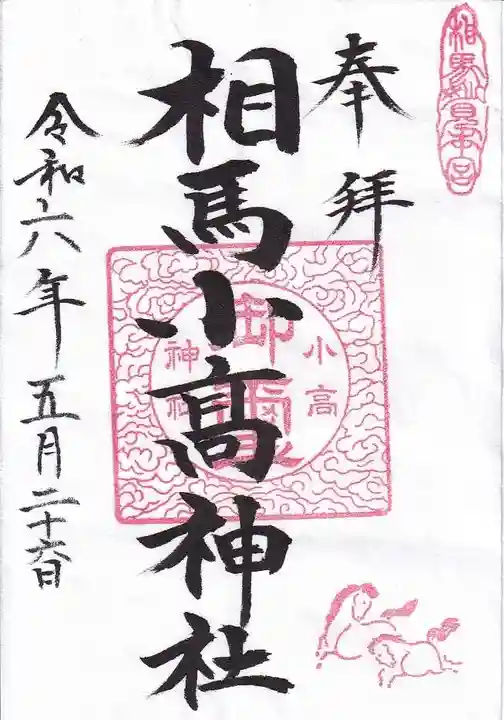 相馬妙見本宮
奉拝
相馬小髙神社
小高
神社
令和六年五月二十六日